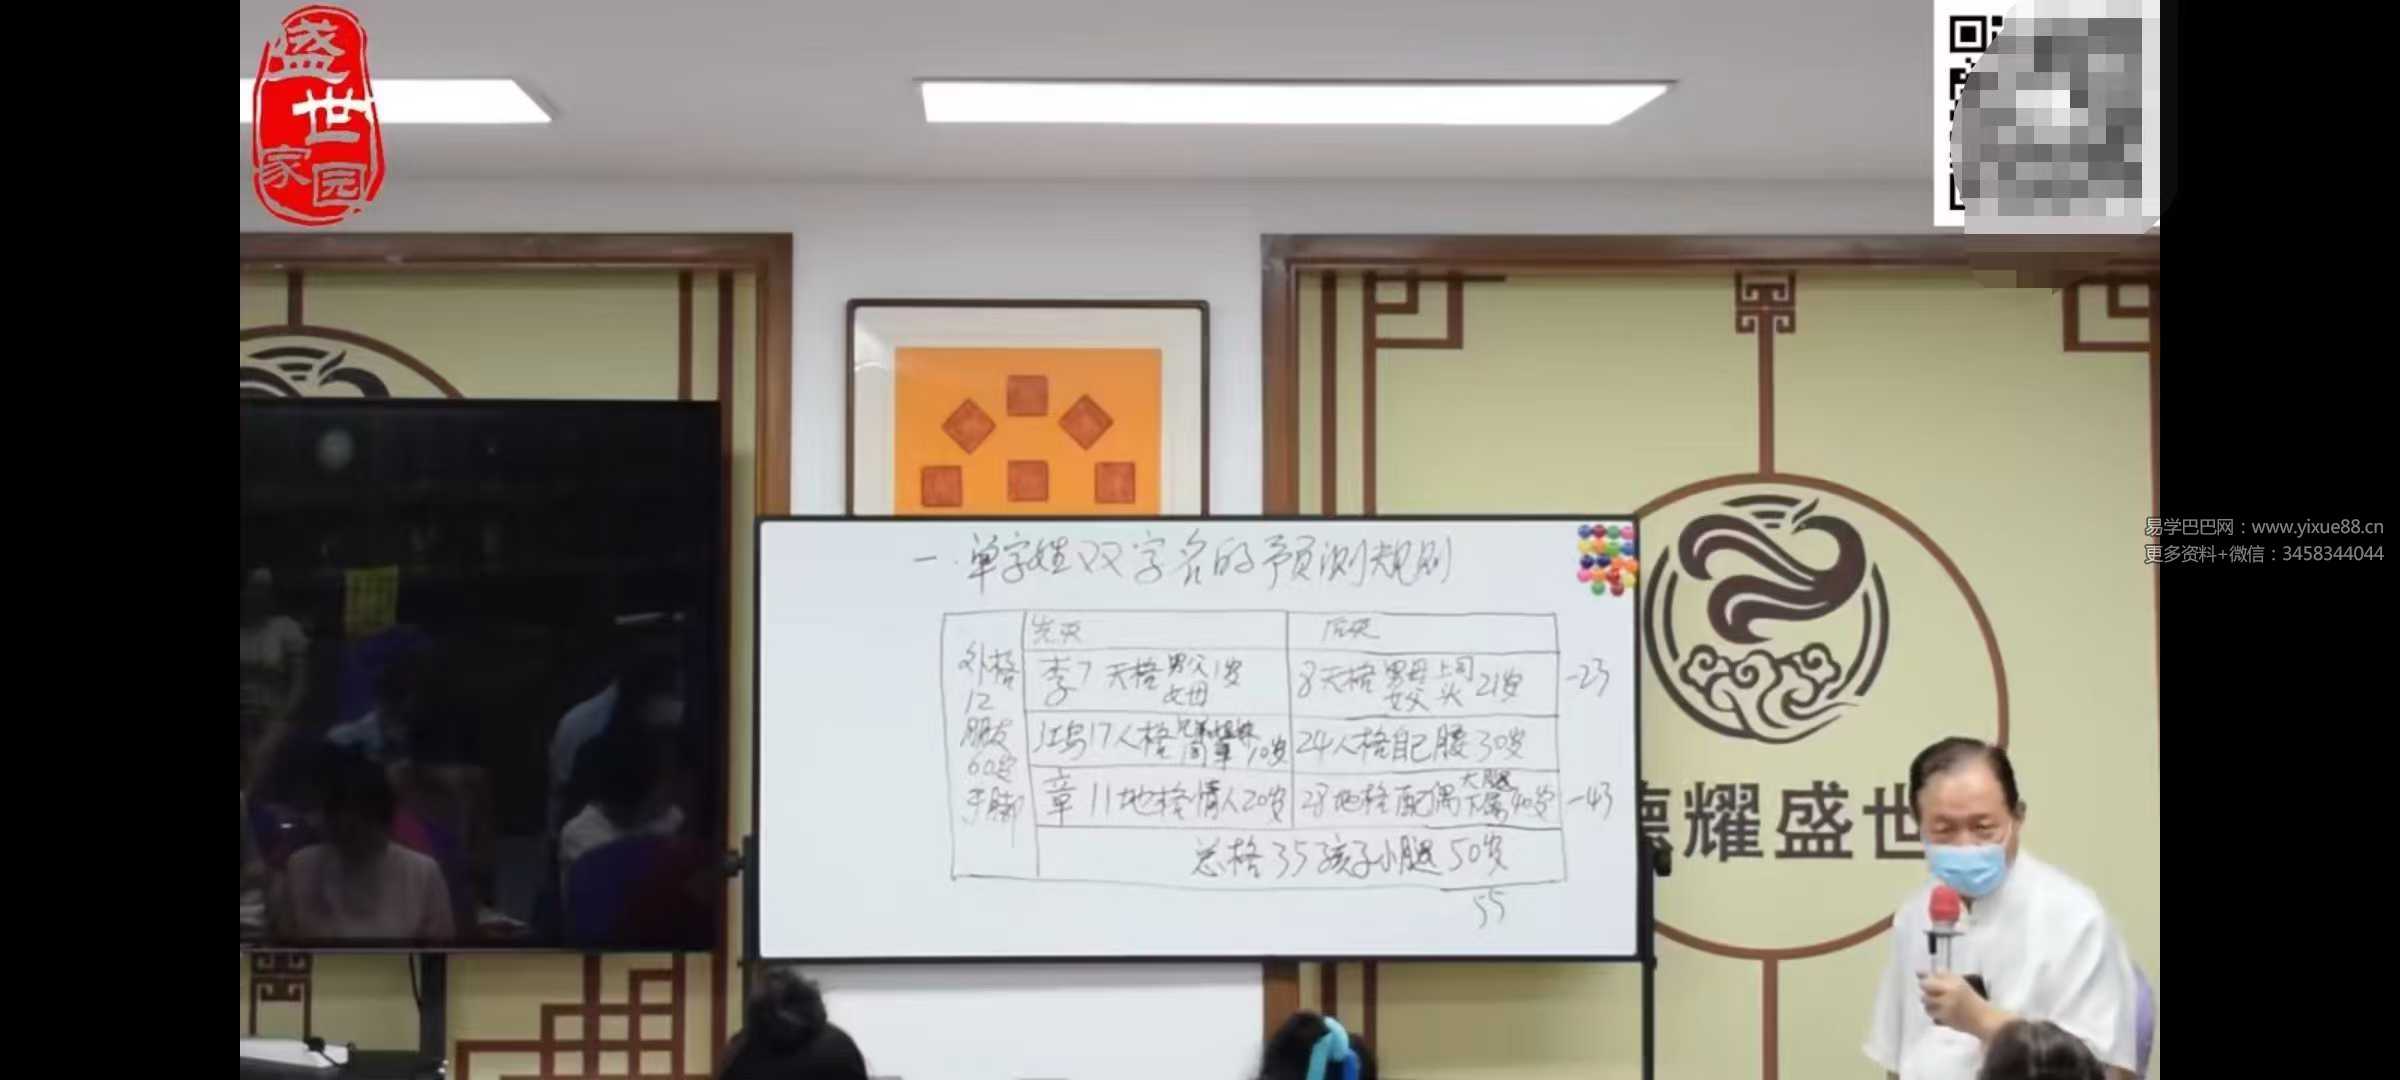 盛世家园
易学巴巴网：www.yixue88.cn
更多资料+微信：3458344044
一.单字姓双字名的予页测规则
先天 后天
外格 12 朋友 60岁 手脚
李7 天格 男父 女母 1岁 8天格 男母 女父 上司 头 21岁 -23
17人格 兄弟姐妹 同事 10岁 24人格自己腰30岁
章 11地格情人20岁 28地格配偶 大腿 下属 40岁 -43
总格35孩子小腿50岁
55
德耀盛世